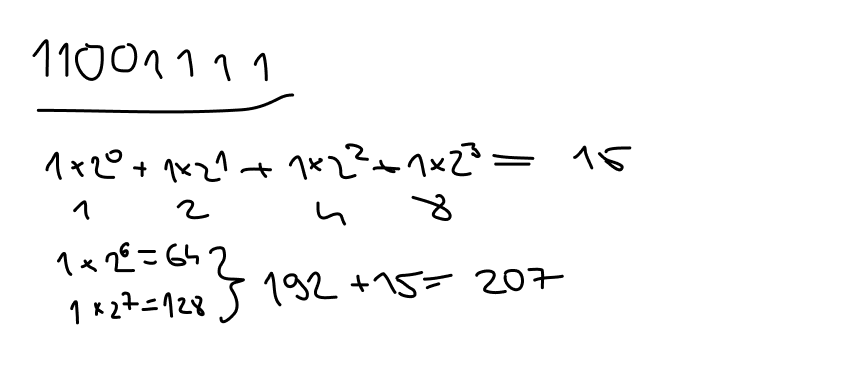 11001111
1×2⁰ + 1×2¹ + 1×2² + 1×2³ = 15
1 2 4 8
1 × 2⁶ = 64
1 × 2⁷ = 128 } 192 + 15 = 207